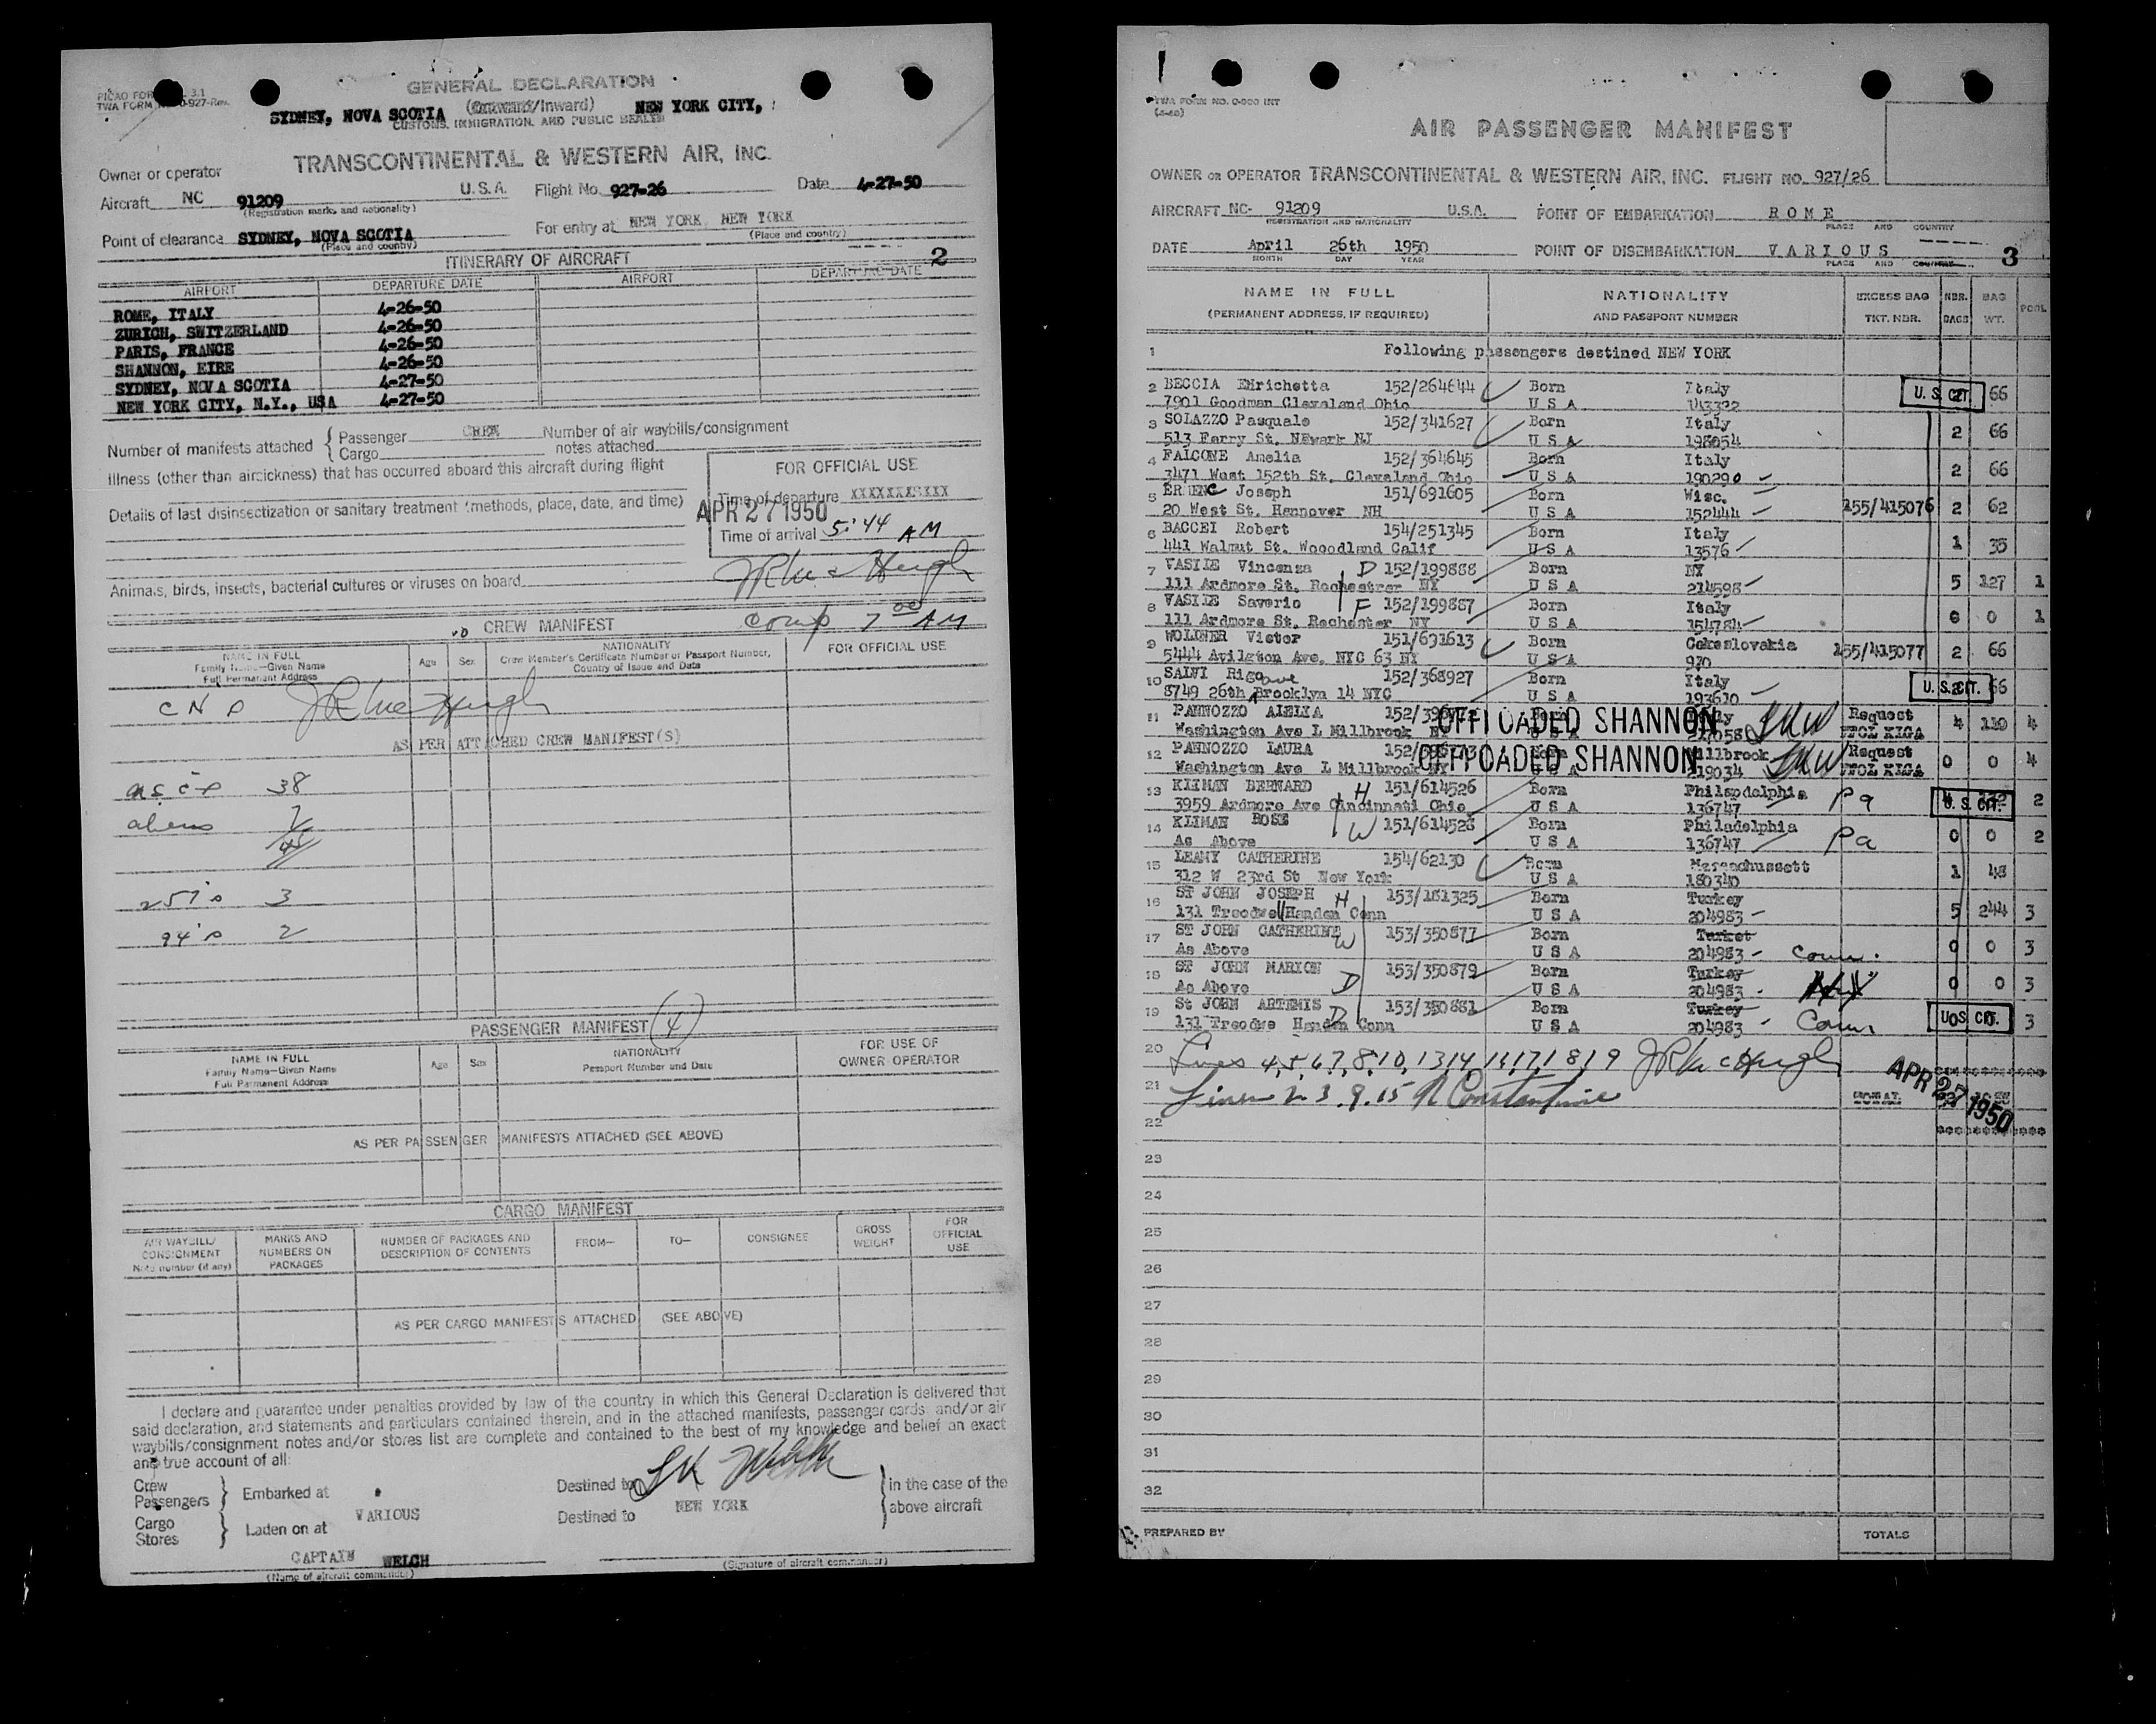 GENERAL DECLARATION
(Outward/Inward)
SYDNEY, NOVA SCOTIA NEW YORK CITY,
CUSTOMS, IMMIGRATION, AND PUBLIC HEALTH
TRANSCONTINENTAL & WESTERN AIR, INC.
Owner or operator
Aircraft NC 91209 U.S.A. Flight No. 927-26 Date 4-27-50
(Registration marks and nationality)
Point of clearance SYDNEY, NOVA SCOTIA For entry at NEW YORK, NEW YORK
(Place and country) (Place and country)
ITINERARY OF AIRCRAFT 2
AIRPORT DEPARTURE DATE AIRPORT DEPARTURE DATE
ROME, ITALY 4-26-50
ZURICH, SWITZERLAND 4-26-50
PARIS, FRANCE 4-26-50
SHANNON, EIRE 4-26-50
SYDNEY, NOVA SCOTIA 4-27-50
NEW YORK CITY, N.Y., USA 4-27-50
Number of manifests attached { Passenger CREW Number of air waybills/consignment
Cargo notes attached
Illness (other than airsickness) that has occurred aboard this aircraft during flight
FOR OFFICIAL USE
Time of departure XXXXXXXXXXX
Details of last disinsectization or sanitary treatment (methods, place, date, and time)
APR 27 1950
Time of arrival 5:44 AM
Animals, birds, insects, bacterial cultures or viruses on board
comp 7 00 AM
CREW MANIFEST
NAME IN FULL
Family Name—Given Name
Full Permanent Address
Age Sex
NATIONALITY
Crew Member's Certificate Number or Passport Number,
Country of Issue and Date
FOR OFFICIAL USE
AS PER ATTACHED CREW MANIFEST(S)
38
aliens 7
257's 3
94's 2
PASSENGER MANIFEST (4)
NAME IN FULL
Family Name—Given Name
Full Permanent Address
Age Sex
NATIONALITY
Passport Number and Date
FOR USE OF
OWNER-OPERATOR
AS PER PASSENGER MANIFESTS ATTACHED (SEE ABOVE)
CARGO MANIFEST
AIR WAYBILL/
CONSIGNMENT
Note number (if any)
MARKS AND
NUMBERS ON
PACKAGES
NUMBER OF PACKAGES AND
DESCRIPTION OF CONTENTS
FROM— TO— CONSIGNEE
GROSS
WEIGHT
FOR
OFFICIAL
USE
AS PER CARGO MANIFESTS ATTACHED (SEE ABOVE)
I declare and guarantee under penalties provided by law of the country in which this General Declaration is delivered that
said declaration, and statements and particulars contained therein, and in the attached manifests, passenger cards, and/or air
waybills/consignment notes and/or stores list are complete and contained to the best of my knowledge and belief an exact
and true account of all:
Crew
Passengers } Embarked at Destined to } in the case of the
Cargo
Stores } Laden on at VARIOUS Destined to NEW YORK above aircraft
CAPTAIN WELCH
(Name of aircraft commander) (Signature of aircraft commander)
AIR PASSENGER MANIFEST
OWNER OR OPERATOR TRANSCONTINENTAL & WESTERN AIR, INC. FLIGHT NO. 927/26
AIRCRAFT NC- 91209 U.S.A. POINT OF EMBARKATION ROME
REGISTRATION AND NATIONALITY PLACE AND COUNTRY
DATE April 26th 1950 POINT OF DISEMBARKATION VARIOUS
MONTH DAY YEAR PLACE AND COUNTRY
3
NAME IN FULL
(PERMANENT ADDRESS, IF REQUIRED)
NATIONALITY
AND PASSPORT NUMBER
EXCESS BAG
TKT. NBR.
NBR.
BAGS
BAG
WT.
POOL
1 Following passengers destined NEW YORK
2 BECCIA EHrichetta 152/264644 Born Italy U.S. CIT. 66
7901 Goodman Cleveland Ohio U S A
3 SOLAZZO Pasquale 152/341627 Born Italy 2 66
513 Ferry St. NEwark NJ U S A 198054
4 FALCONE Amelia 152/364645 Born Italy 2 66
3471 West 152th St. Cleveland Ohio U S A 190290
5 Joseph 151/691605 Born Wisc. 155/415076 2 62
20 West St. Hannover NH U S A 152444
6 BACCEI Robert 154/251345 Born Italy 1 35
441 Walnut St. Wooodland Calif U S A 13576
7 VASILE Vincenza D 152/199888 Born NY 5 127 1
111 Ardmore St. Rochester NY U S A 214598
8 VASILE Saverio F 152/199887 Born Italy 0 0 1
111 Ardmore St. Rochester NY U S A 154784
9 WOLDNER Victor 151/691613 Born 155/415077 2 66
5444 NYC 63 NY U S A 920
10 SALVI Rigo 152/368927 Born Italy U.S. CIT. 66
8749 26th ave Brooklyn 14 NYC U S A 193610
11 PANNOZZO ALELIA OFFLOADED SHANNON Request 4 110 4
Washington Ave L Millbrook NY
12 PANNOZZO LAURA OFFLOADED SHANNON Millbrook Request 0 0 4
Washington Ave L Millbrook NY 219034
13 KLIMAN BERNARD H 151/614526 Born Philapdelphia Pa U.S. CIT. 2
3959 Ardmore Ave Cincinnati Ohio U S A 136747
14 KLIMAN ROSE W 151/614528 Born Philadelphia Pa 0 0 2
As Above U S A 136747
15 LEAHY CATHERINE 154/62130 Born Massachussett 1 48
312 W 23rd St New York U S A 180340
16 ST JOHN JOSEPH H 153/181325 Born Turkey 5 244 3
131 Treodwell Hamden Conn U S A 204983
17 ST JOHN CATHERINE W 153/350877 Born Turket 0 0 3
As Above U S A 204983 Conn.
18 ST JOHN MARION D 153/350879 Born Turkey 0 0 3
As Above U S A 204983
19 St JOHN ARTEMIS D 153/350881 Born Turkey U.S. CIT. 3
131 Treodwe Hamden Conn U S A 204983 Conn.
20 Lines 4,5,6,7,8,10,13,14,16,17,18,19
21 Lines 2. 3. 9. 15 N Constantine
APR 27 1950
22
23
24
25
26
27
28
29
30
31
32
PREPARED BY TOTALS